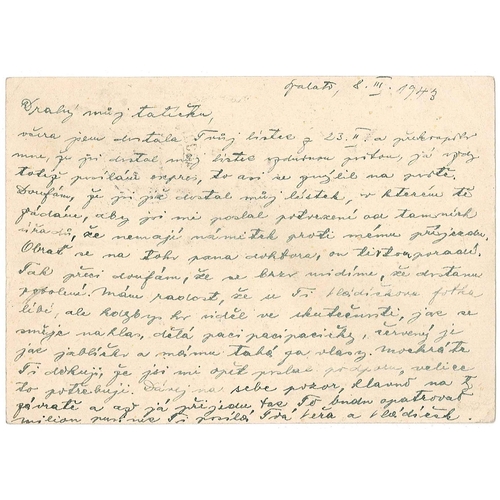 8. III. 1943
Drahý můj tatíčku,
včera jsem dostala Tvůj lístek z 23. II. a překvapilo
mne, že jsi dostal můj lístek vzdušnou poštou, já vždy
totiž posílám expres, to asi se zmýlil na poště.
Doufám, že jsi již dostal můj lístek, v kterém tě
žádám, aby jsi mi poslal potvrzení od tamních
úřadů, že nemají námitek proti mému příjezdu.
Obrať se na toho pana doktora, on ti to poradí.
Tak přeci doufám, že se brzy uvidíme, že dostanu
povolení. Mám radost, že se Ti Vládíčkova fotka
líbí, ale kdybys ho viděl ve skutečnosti, jak se
směje nahlas, dělá paci pacipacičky, červený je
jak jablíčko a mámu tahá za vlasy. Mockráte
Ti děkuji, že jsi mi opět poslal podporu, velice
to potřebuji. Dávej na sebe pozor, hlavně na
závratě a až já přijedu, tak Tě budu opatrovat
milion pus Ti posílá Tvá Věra a Vládíček.